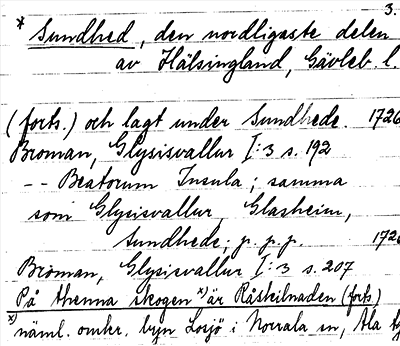 3.
* Sundhed, den nordligaste delen
av Hälsingland, Gävleb. l.
(forts.) och lagt under Sundhede. 1726
Broman, Glysisvallur I:3 s. 192
-- Beatorum Insula; samma
som Glysisvallur, Glasheim,
Sundhede; p. p. p. 1726
Broman, Glysisvallur I:3 s. 207
På thenna skogen x) är Råskilnaden (forts)
x) näml. omkr. byn Losjö i Norrala sn, Ala